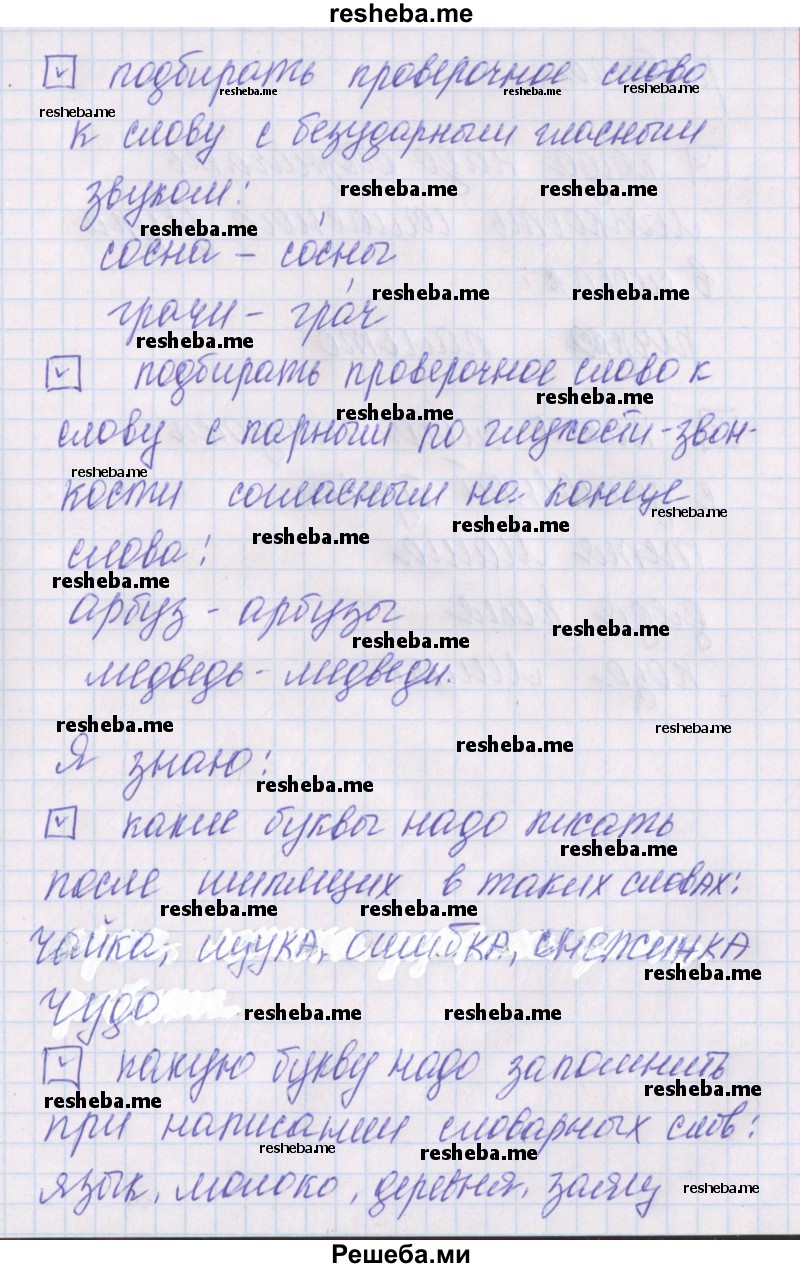 resheba.me
подбирать проверочное слово
к слову с безударным гласным
звуком:
сосна – со́сны
грачи – гра́ч
подбирать проверочное слово к
слову с парным по глухости-звон-
кости согласным на конце
слова:
арбуз – арбузы
медведь – медведи.
Я знаю:
какие буквы надо писать
после шипящих в таких словах:
чайка, щука, ошибка, снежинка
чудо
какую букву надо запомнить
при написании словарных слов:
язык, молоко, деревня,
Решеба.ми